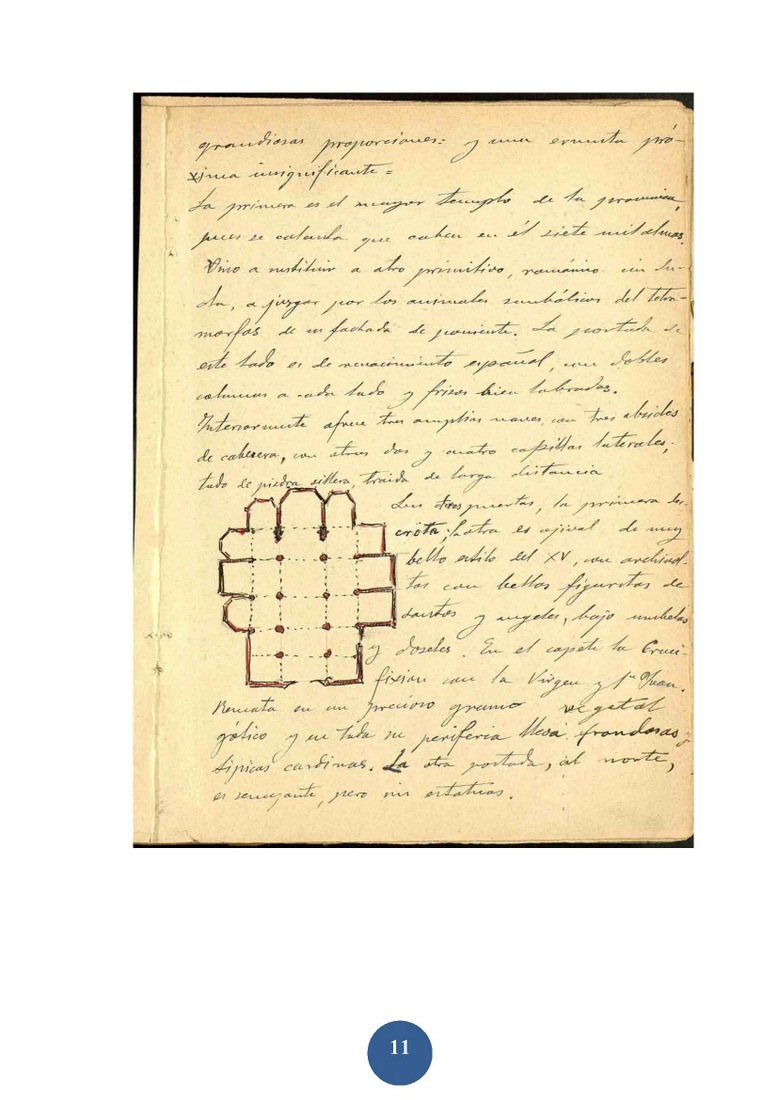 grandiosas proporciones: y una ermita pró-
xima insignificante =
La primera es el mayor templo de la provincia,
pues se calcula que caben en él siete mil almas.
Vino a sustituir a otro primitivo, románico sin du-
da, a juzgar por los animales simbólicos del tetra-
morfos de su fachada de poniente. La portada de
este lado es de renacimiento español, con dobles
columnas a cada lado y frisos bien labrados.
Interiormente ofrece tres amplias naves, con tres ábsides
de cabecera, con otros dos y cuatro capillas laterales,
todo de piedra sillera, traida de larga distancia
Sus otras puertas, la primera des-
crita; la otra es ojival de muy
bello estilo del XV, con archivol-
tas con bellas figuritas de
santos y angeles, bajo umbelas
y doseles. En el copete la Cruci-
fixion con la Virgen y Sn Juan.
Remata en un precioso grumo vegetal
gótico y en toda su periferia lleva frondosas y
típicas cardinas. La otra portada, al norte,
es semejante, pero sin estatuas.
11